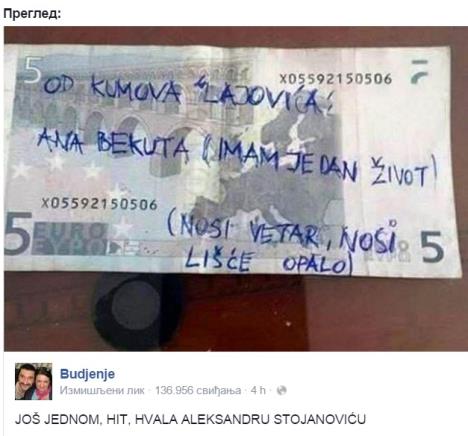 Преглед:
5
X05592150506
OD KUMOVA LAJOVIĆA:
ANA BEKUTA (IMAM JEDAN ŽIVOT)
X05592150506
(NOSI VETAR, NOSI
LIŠĆE OPALO)
5 EURO
ΕΥΡΩ
5
Budjenje
Измишљени лик · 136.956 свиђања · 4 h ·
JOŠ JEDNOM, HIT, HVALA ALEKSANDRU STOJANOVIĆU